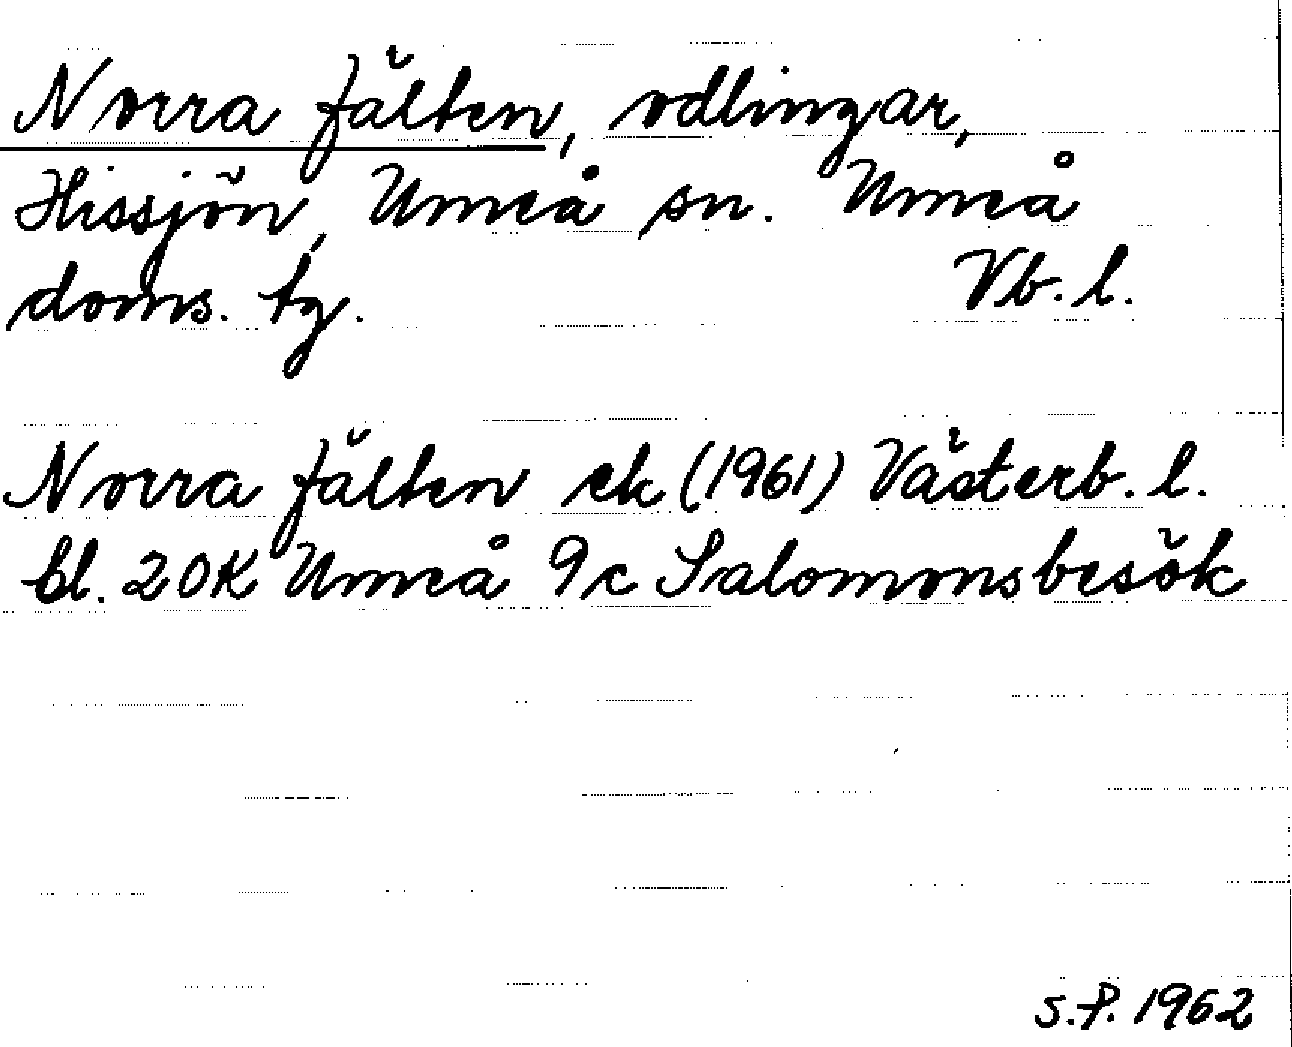 Norra fälten, odlingar,
Hissjön, Umeå sn. Umeå
doms. tg. Vb. l.
Norra fälten ek (1961) Västerb. l.
bl. 20K Umeå 9c Salomonsbesök
S.P. 1962